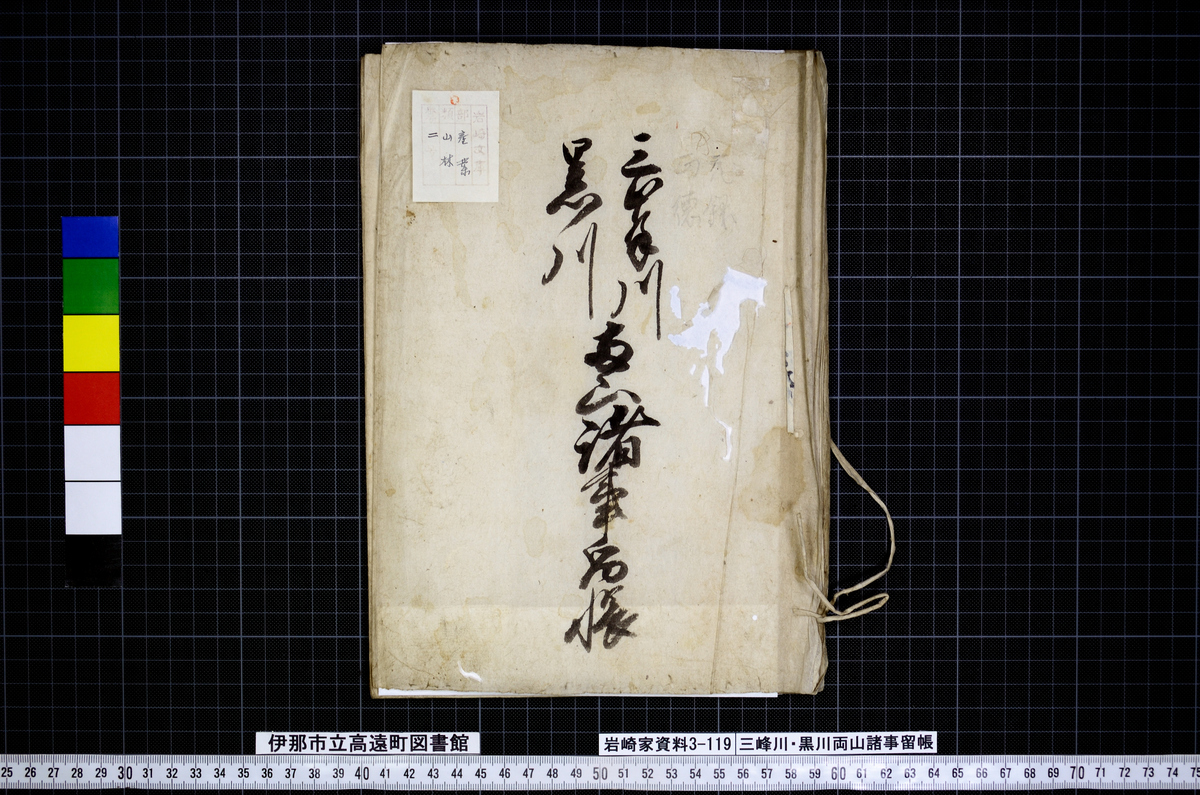 三峯川
黒川
両山諸事留帳
産業
山林
二
伊那市立高遠町図書館
岩崎家資料3-119
三峰川・黒川両山諸事留帳
25 26 27 28 29 30 31 32 33 34 35 36 37 38 39 40 41 42 43 44 45 46 47 48 49 50 51 52 53 54 55 56 57 58 59 60 61 62 63 64 65 66 67 68 69 70 71 72 73 74 75